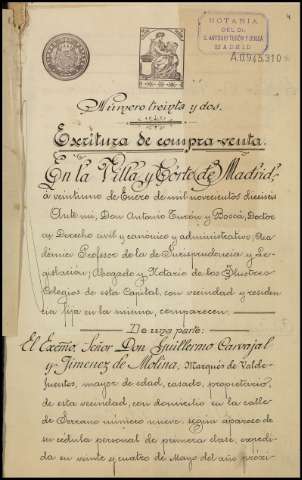 NOTARIA
DEL Dr.
D. ANTONIO TURÓN Y BOSCÁ
MADRID
A.0945,310
Número treinta y dos.
Escritura de compra-venta.
En la Villa y Corte de Madrid,
á veintiuno de Enero de mil novecientos dieciseis
Ante mí, Don Antonio Turón y Boscá, Doctor
en Derecho civil y canónico y administrativo, Aca-
démico Profesor de la de Jurisprudencia y Le-
gislación, Abogado y Notario de los Ilustres
Colegios de esta Capital, con vecindad y residen-
cia fija en la misma, comparecen:
De una parte:
El Excmo. Señor Don Guillermo Carvajal
y Jimenez de Molina, Marqués de Valde-
fuentes, mayor de edad, casado, propietario,
de esta vecindad, con domicilio en la calle
de Serrano número nueve, según aparece de
su cédula personal de primera clase, expedi-
da en veinte y cuatro de Mayo del año próxi-